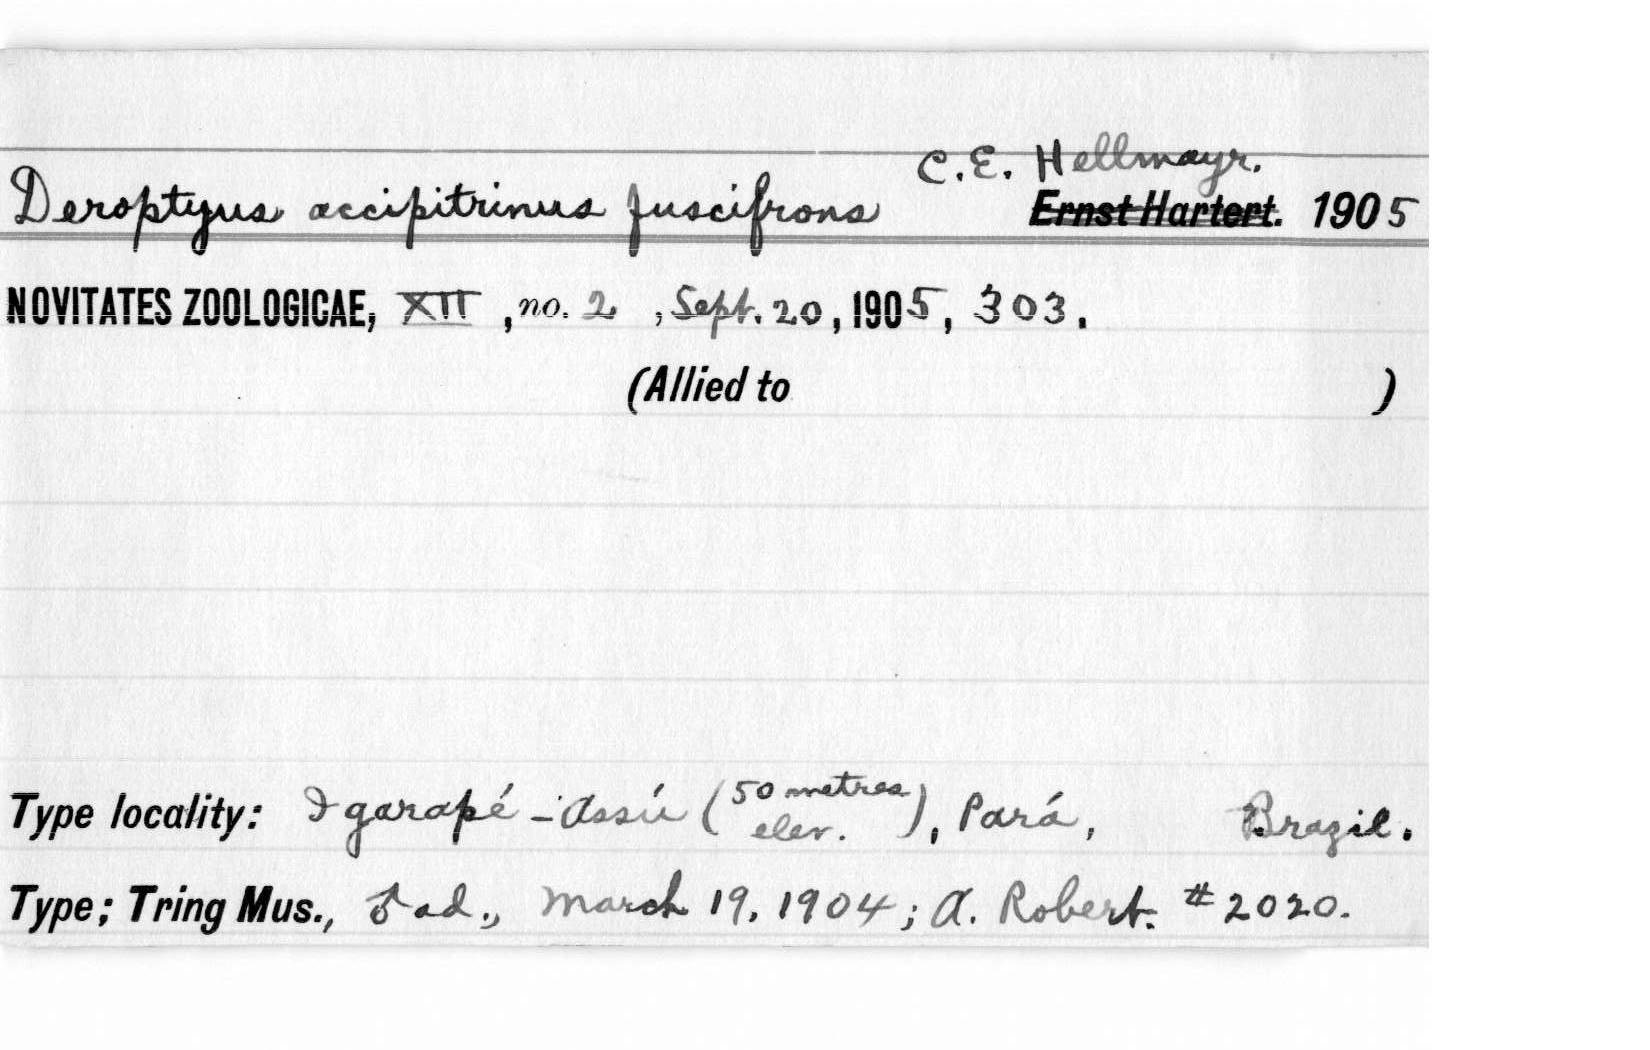 C. E. Hellmayr.
Deroptyus accipitrinus fuscifrons Ernst Hartert. 1905
NOVITATES ZOOLOGICAE, XII, no. 2, Sept. 20, 1905, 303.
(Allied to )
Type locality: Igarapé-Assú (50 metres elev.), Pará, Brazil.
Type; Tring Mus., ♂ ad., March 19, 1904; A. Robert. #2020.